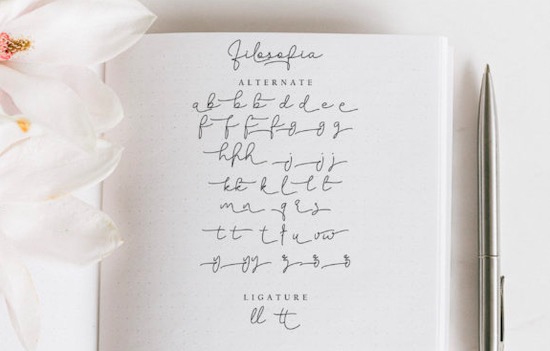 Filosofia
ALTERNATE
a b b b d d e e e
f f f f g g g
h h h j j j j
k k k l l t
m n q r s
t t t f u v w
y y y y z z z z
LIGATURE
ll tt